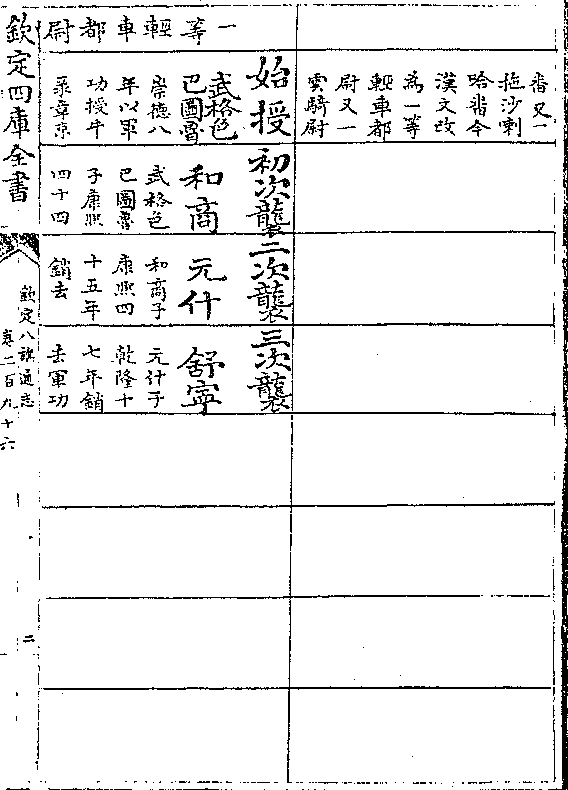 番又一
拖沙喇
哈番今
漢文改
為一等
輕車都
尉又一
雲騎尉
一等輕車都尉
始授
武格色
巴圖魯
崇德八
年以軍
功授牛
彔章京
初次襲
和商
武格色
巴圖魯
子康熙
四十四
二次襲
元什
和商子
康熙四
十五年
銷去
三次襲
舒寧
元什子
乾隆十
七年銷
去軍功
欽定四庫全書
欽定八旗通志
卷二百九十六
二